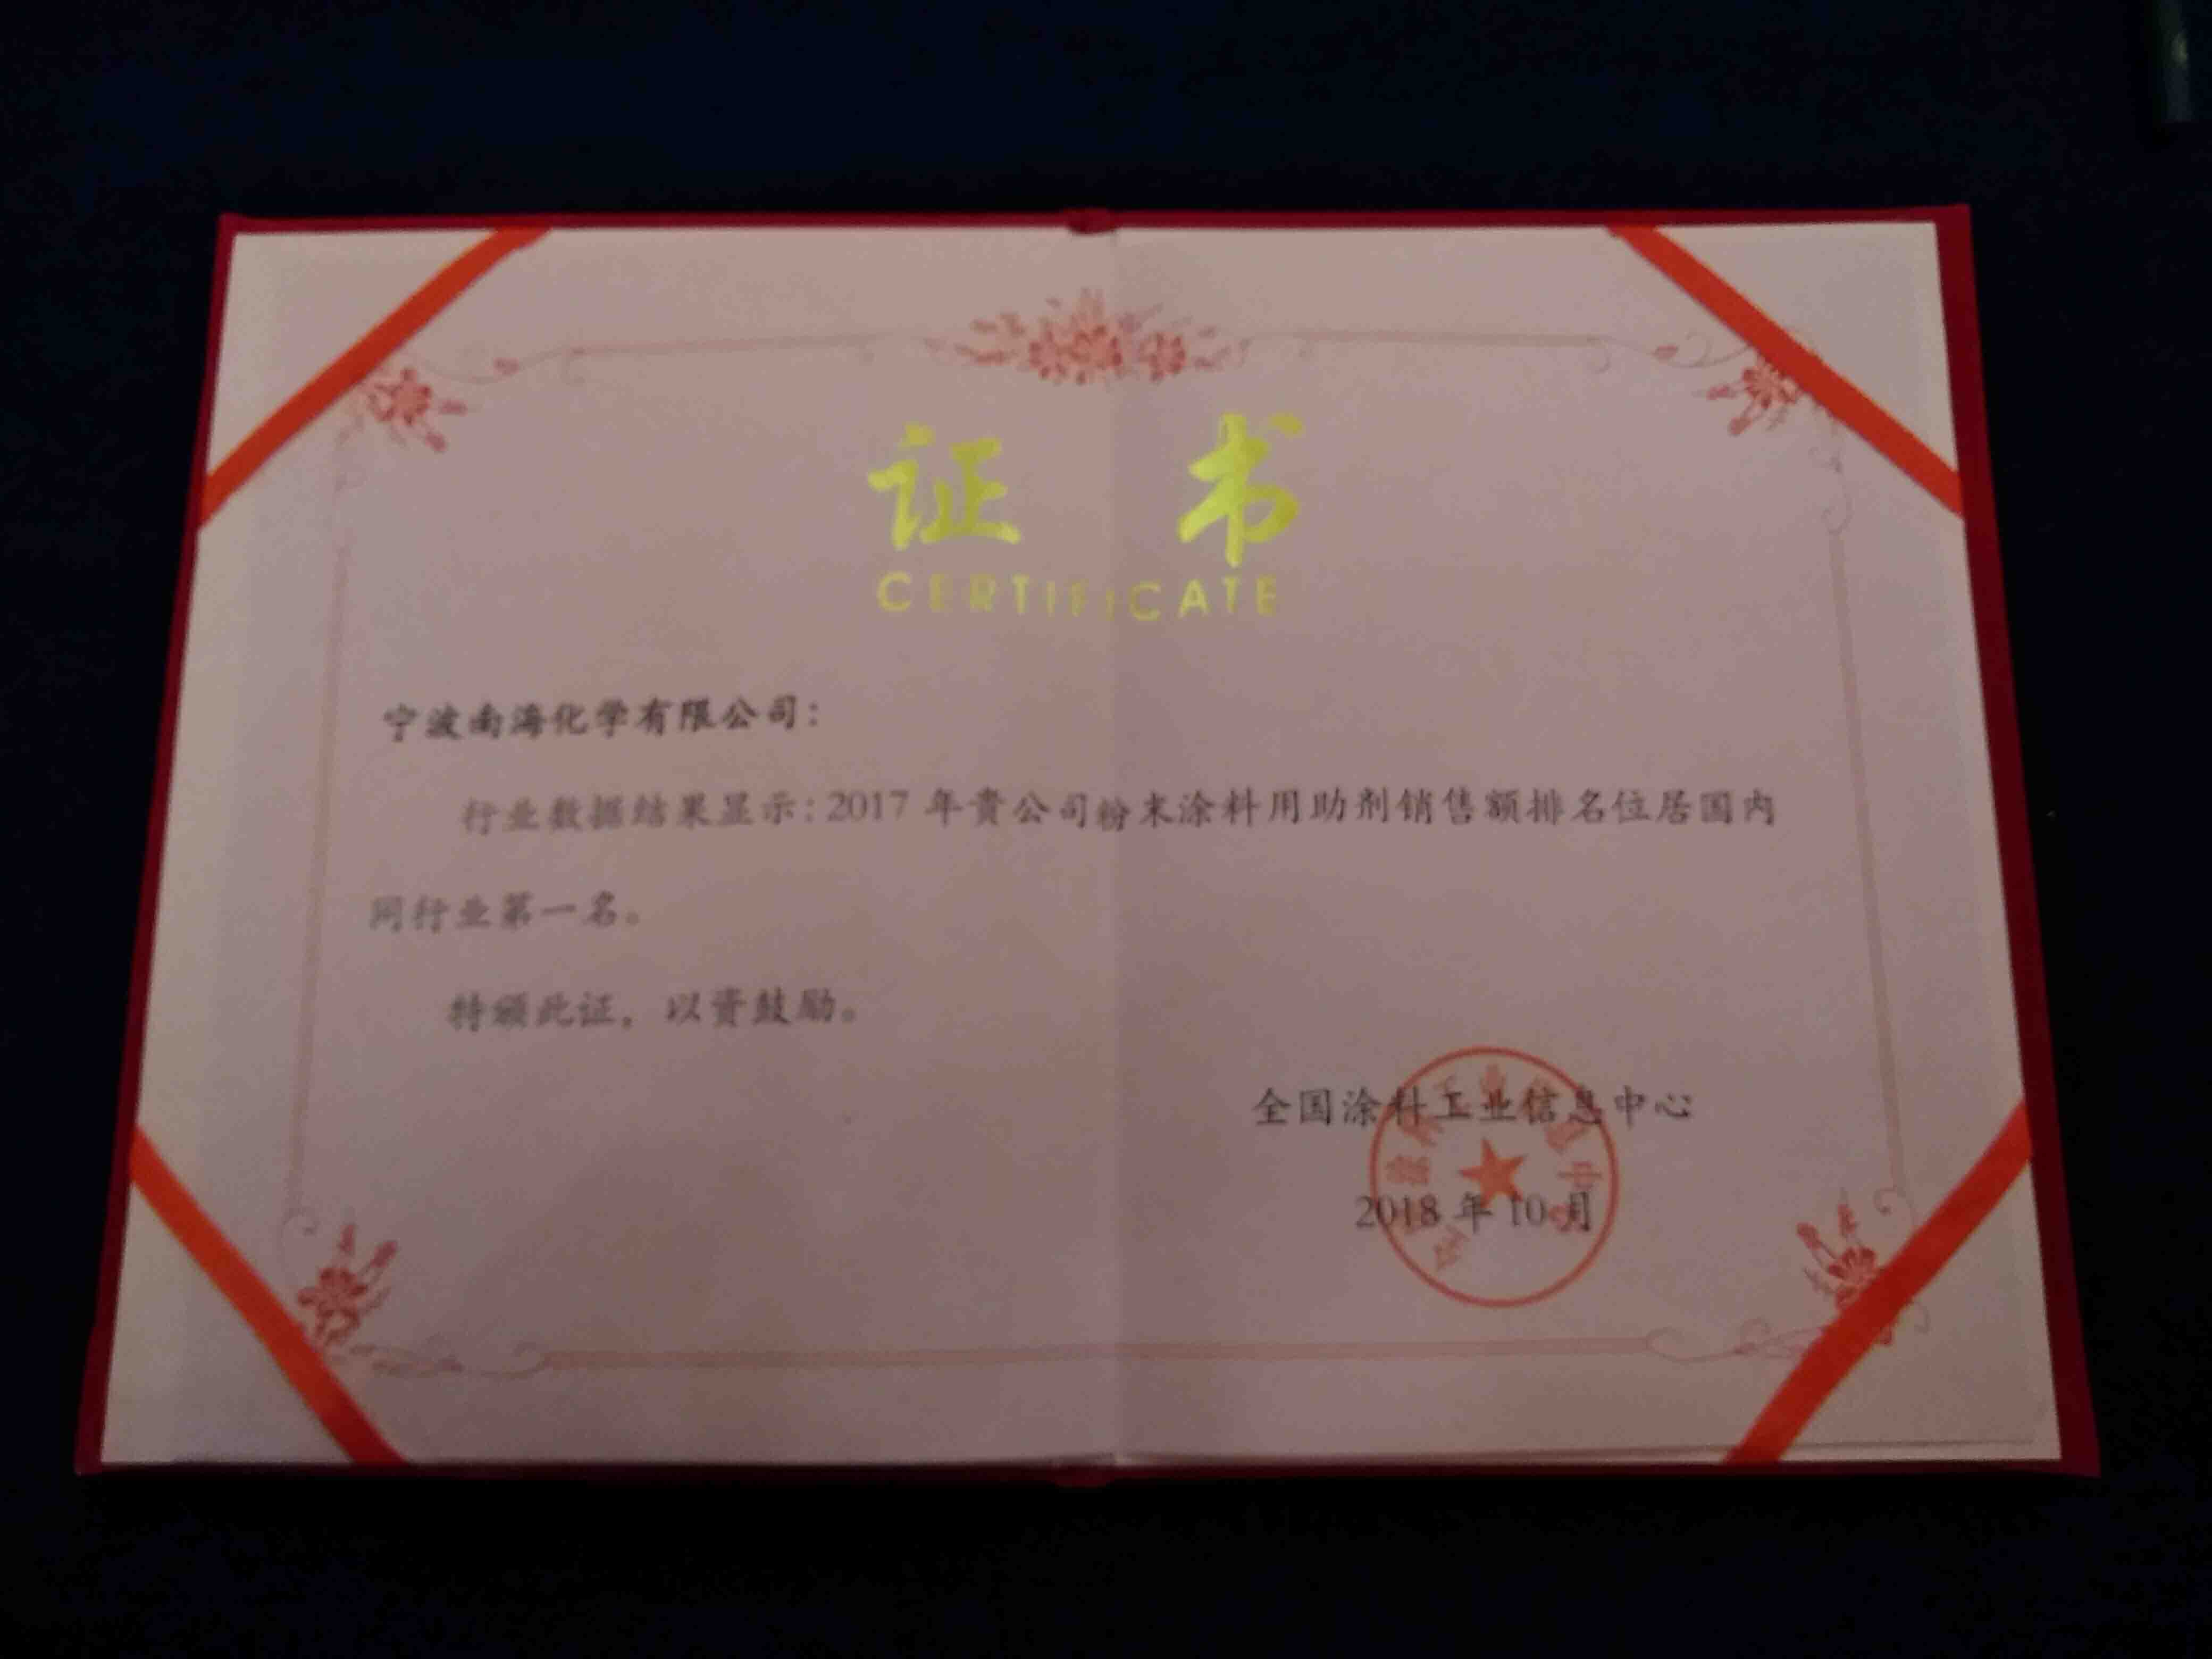 证 书
CERTIFICATE
宁波南海化学有限公司：
行业数据结果显示：2017 年贵公司粉末涂料用助剂销售额排名位居国内
同行业第一名。
特颁此证，以资鼓励。
全国涂料工业信息中心
2018 年 10 月